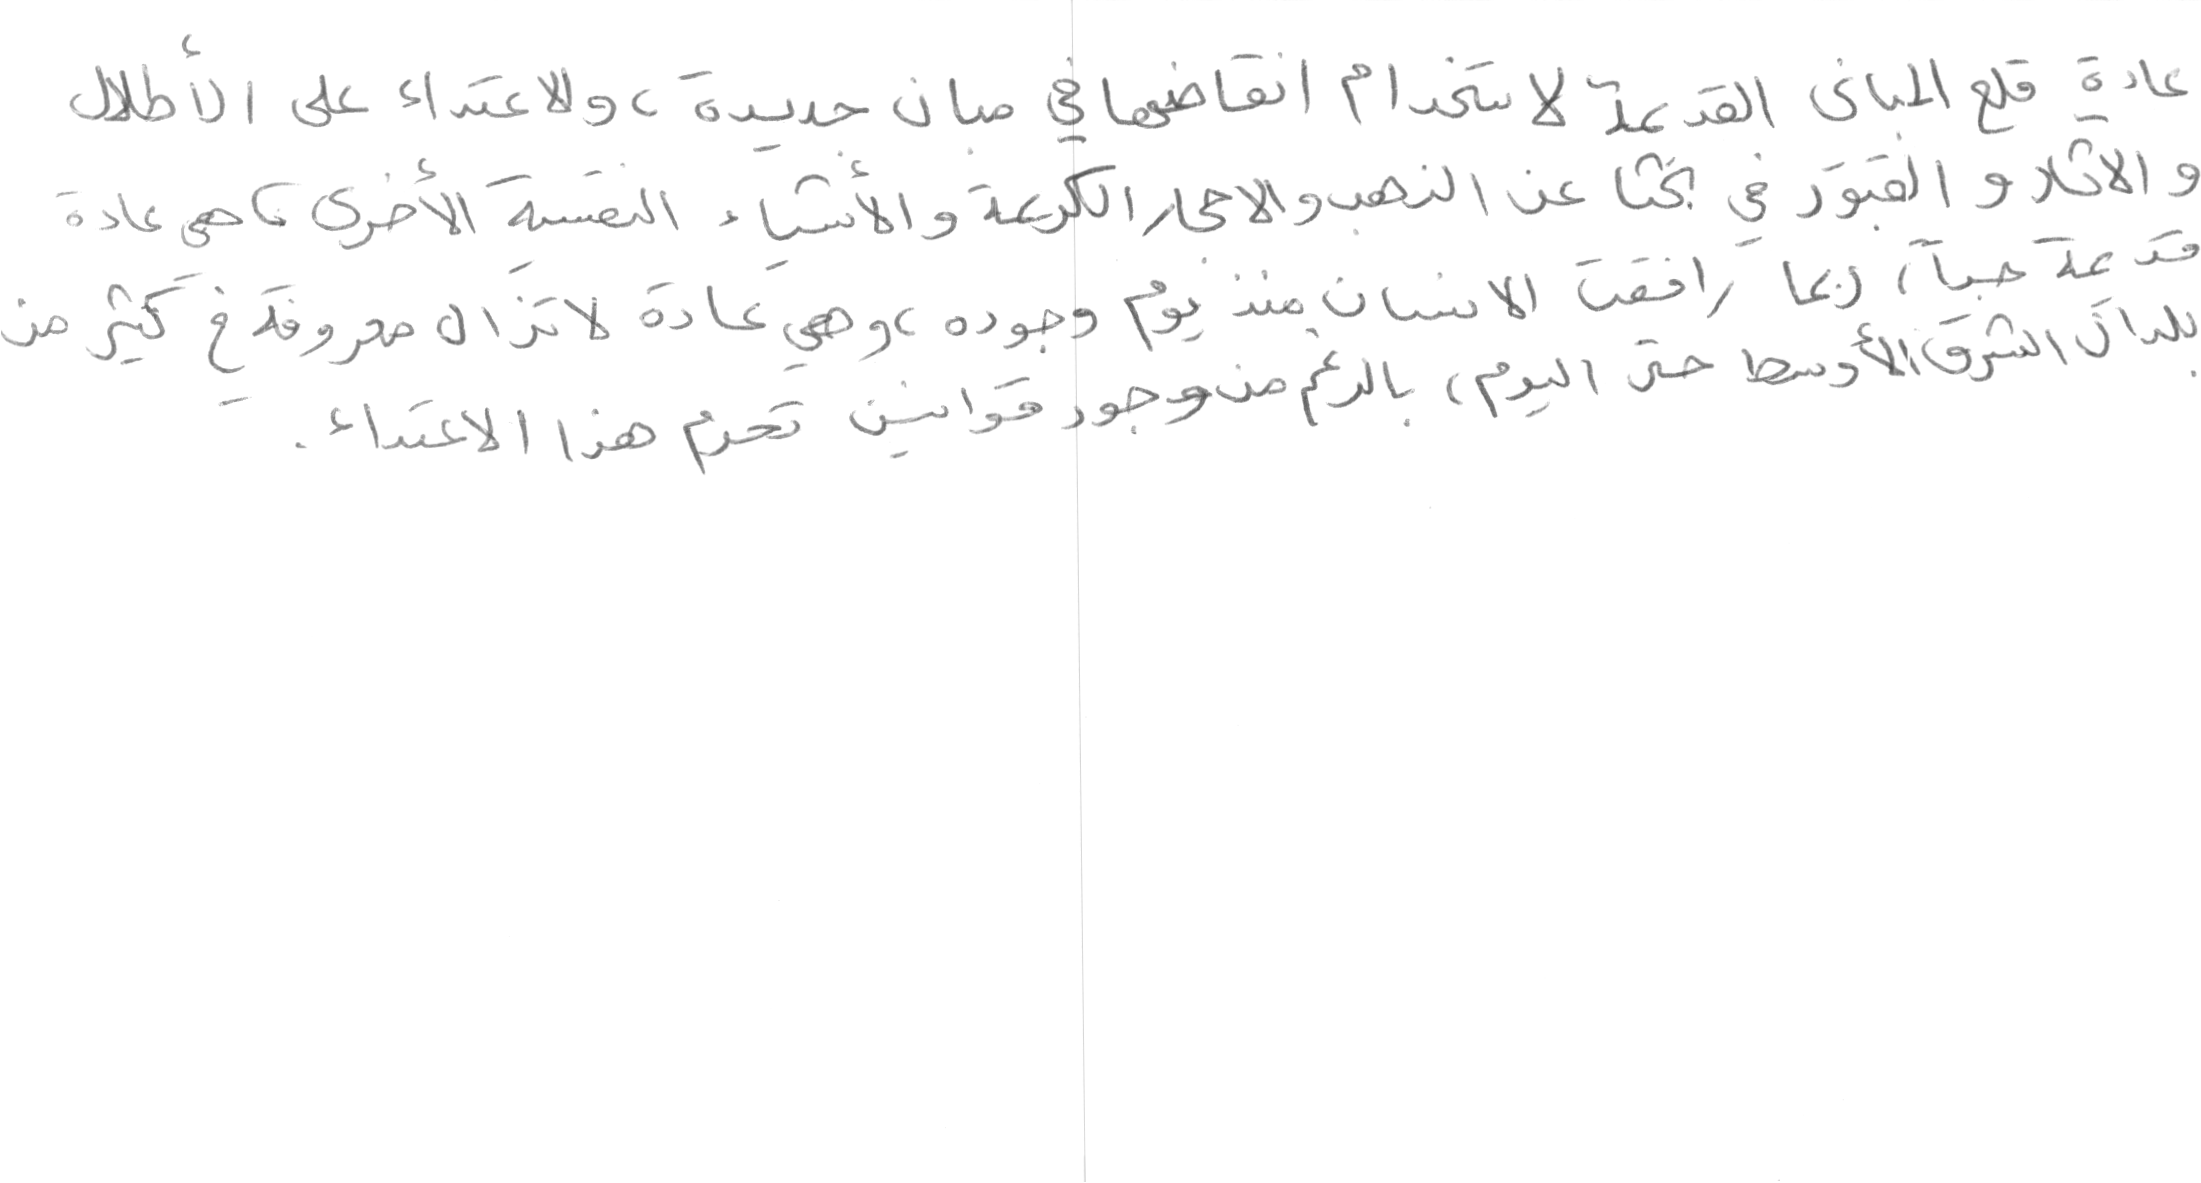 عادة قلع المباني القديمة لاستخدام انقاضها في مبان جديدة، ولاعتداء على الأطلال
والاثار والقبور في بحثا عن الذهب والاحجار الكريمة والأشياء النفيسة الأخرى، هي عادة
قديمة جدآ، ربما رافقت الانسان منذ يوم وجوده، وهي عادة لا تزال معروفة في كثير من
بلدان الشرق الأوسط حتى اليوم، بالرغم من وجود قوانين تحرم هذا الاعتداء.